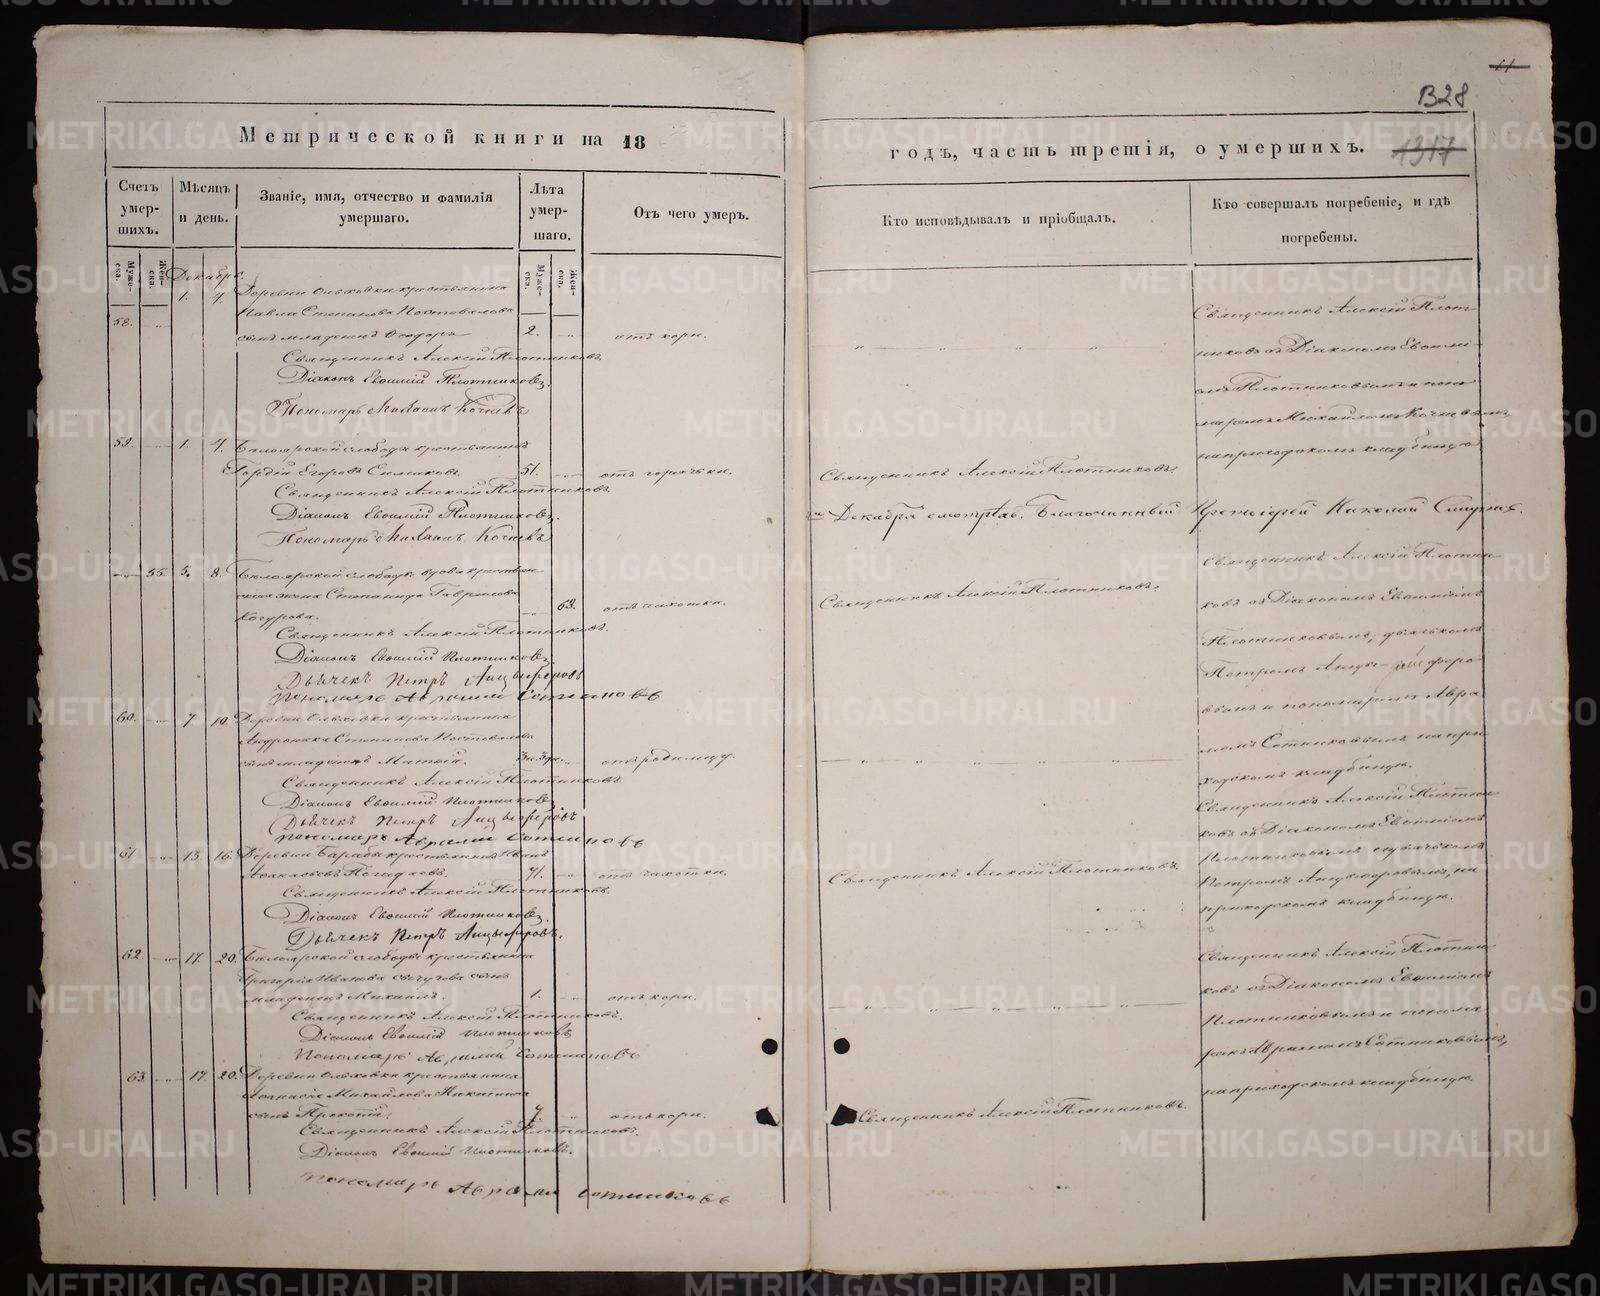 11
В28
1317
Метрической книги на 18
годъ, часть третія, о умершихъ.
Счетъ умер-шихъ.
Мѣсяцъ и день.
Званіе, имя, отчество и фамилія умершаго.
Лѣта умер-шаго.
Отъ чего умеръ.
Кто исповѣдывалъ и пріобщалъ.
Кто совершалъ погребеніе, и гдѣ погребены.
Муже-ска.
Жен-ска.
Муже-ска.
Жен-ска.
Декабрь.
1. 4. Деревни Ольховки крестьянина
Павла Степанова Постовалова
58. сынъ младенецъ Ѳеодоръ 2. отъ кори.
Священникъ Алексій Плотниковъ.
Діаконъ Евѳимій Плотниковъ.
Пономарь Михаилъ Кочневъ
Священникъ Алексій Плот-
никовъ съ Діакономъ Евѳимі-
емъ Плотниковымъ и поно-
маремъ Михаиломъ Кочневымъ
на приходскомъ кладбищѣ
59. 1. 4. Бѣлоярской слободы крестьянинъ
Гордій Егоровъ 51. отъ горячки.
Священникъ Алексій Плотниковъ.
Священникъ Алексій Плотниковъ.
Діаконъ Евѳимій Плотниковъ.
Пономарь Михаилъ Кочневъ
Декабря смотрѣлъ. Благочинный Протоіерей Николай
55. 5. 8. Бѣлоярской слободы вдова крестьян-
ская жена Степанида Гаврилова
63. отъ чахотки.
Священникъ Алексій Плотниковъ.
Священникъ Алексій Плотниковъ.
Діаконъ Евѳимій Плотниковъ.
Дьячекъ Петръ Анцыферовъ
Пономарь Аврамій Сотниковъ
Священникъ Алексій Плотни-
ковъ съ Діакономъ Евѳиміемъ
Плотниковымъ, дьячкомъ
Петромъ Анцы-феро-
вымъ и пономаремъ Авра-
міемъ Сотниковымъ на при-
ходскомъ кладбищѣ.
60. 7. 10. Деревни Ольховки крестьянина
Андроника Степанова Постовалова
сынъ младенецъ Матѳій. отъ родимцу.
Священникъ Алексій Плотниковъ.
Діаконъ Евѳимій Плотниковъ
Дьячекъ Петръ Анцыферовъ
пономарь Аврамій Сотниковъ
Священникъ Алексій Плотни-
ковъ съ Діакономъ Евѳиміемъ
Плотниковымъ и дьячкомъ
Петромъ Анцыферовымъ, на
приходскомъ кладбищѣ.
61. 13. 16. Деревни крестьянинъ Иванъ
отъ чахотки.
Священникъ Алексій Плотниковъ.
Священникъ Алексій Плотниковъ.
Діаконъ Евѳимій Плотниковъ.
Дьячекъ Петръ Анцыферовъ.
62. 17. 20. Бѣлоярской слободы крестьянина
Григорія Иванова сынъ
младенецъ Михаилъ. 1. отъ кори.
Священникъ Алексій Плотниковъ.
Діаконъ Евѳимій Плотниковъ
Пономарь Аврамій Сотниковъ
Священникъ Алексій Плотни-
ковъ съ Діакономъ Евѳиміемъ
Плотниковымъ и понома-
ремъ Аврамомъ Сотниковымъ,
на приходскомъ кладбищѣ.
63. 17. 20. Деревни Ольховки крестьянина
Аѳанасія Михайлова Никитина
сынъ Прокопій. 7. отъ кори.
Священникъ Алексій Плотниковъ.
Священникъ Алексій Плотниковъ.
Діаконъ Евѳимій Плотниковъ.
пономарь Аврамій Сотниковъ
METRIKI.GASO-URAL.RU